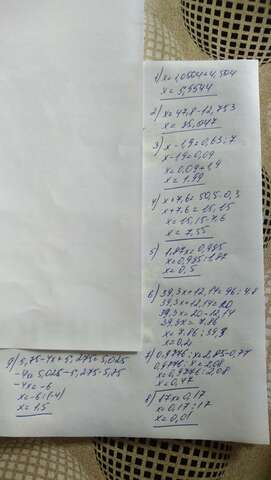 1) x=1,0554+4,504
x=5,5544
2) x=47,8-12,753
x=35,047
3) x-1,9=0,63:7
x-1,9=0,09
x=0,09+1,9
x=1.99
4) x+7,6=50,5·0,3
x+7,6=15,15
x=15,15-7.6
x=7,55
5) 1,97x=0,985
x=0,985:1,97
x=0,5
6) 39,3x+12,14=96:4.8
39,3x+12,14=20
39,3x=20-12,14
39,3x=7.86
x=7.86:39,3
x=0,2
7) 0,9776:x=2,85-0,77
0,9776:x=2,08
x=0,9776:2,08
x=0,47
8) 17x=0,17
x=0,17:17
x=0,01
9) 5,75-4x+5,275=5,025
-4x=5,025-5,275-5,75
-4x=-6
x=-6:(-4)
x=1.5